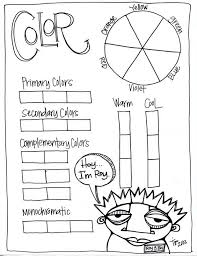 COLOR
Yellow
Orange
Green
Red
Blue
Violet
Primary Colors
Secondary Colors
Warm
Cool
Complementary Colors
Hey...
I'm Ray
Monochromatic